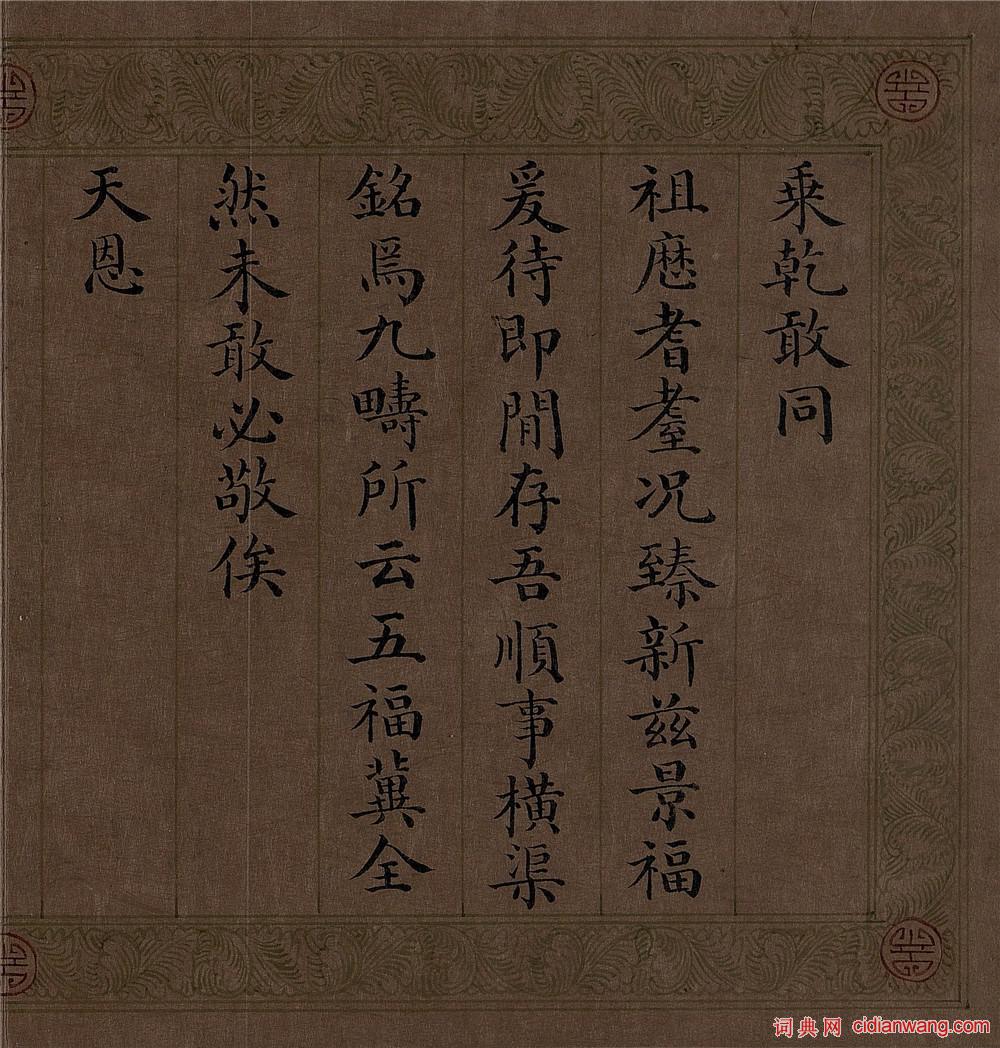 乗乾敢同
祖歴耆耋况臻新兹景福
爰待即閒存吾順事橫渠
銘焉九疇所云五福冀全
然未敢必敬俟
天恩
词典网 cidianwang.com